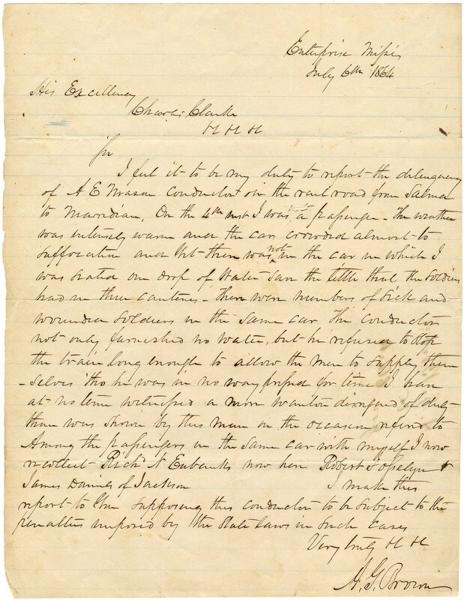 Enterprise Missi
July 6th 1864
His Excellency
Charles Clark
&c &c &c
Sir
I feel it to be my duty to report the delinquency
of A E Conductor on the railroad from Selma
to Meridian. On the 4th inst I was a passenger. The weather
was intensely warm and the car crowded almost to
suffocation and yet there was not in the car in which I
was seated one drop of water save the little that the soldiers
had in their canteens. There were numbers of sick and
wounded soldiers in the same car. The conductor
not only furnished no water, but he refused to stop
the train long enough to allow the men to supply them
-selves tho he was in no way pressed for time. I have
at no time witnessed a more wanton disregard of duty
than was shown by this man on the occasion refered to
Among the passengers in the same car with myself I now
recollect Richd N Eubanks now here Robert Joselyn &
James of Jackson I make this
report to you supposing this conductor to be subject to the
penalties imposed by the State laws in such cases
Very truly &c &c
A. G. Brown